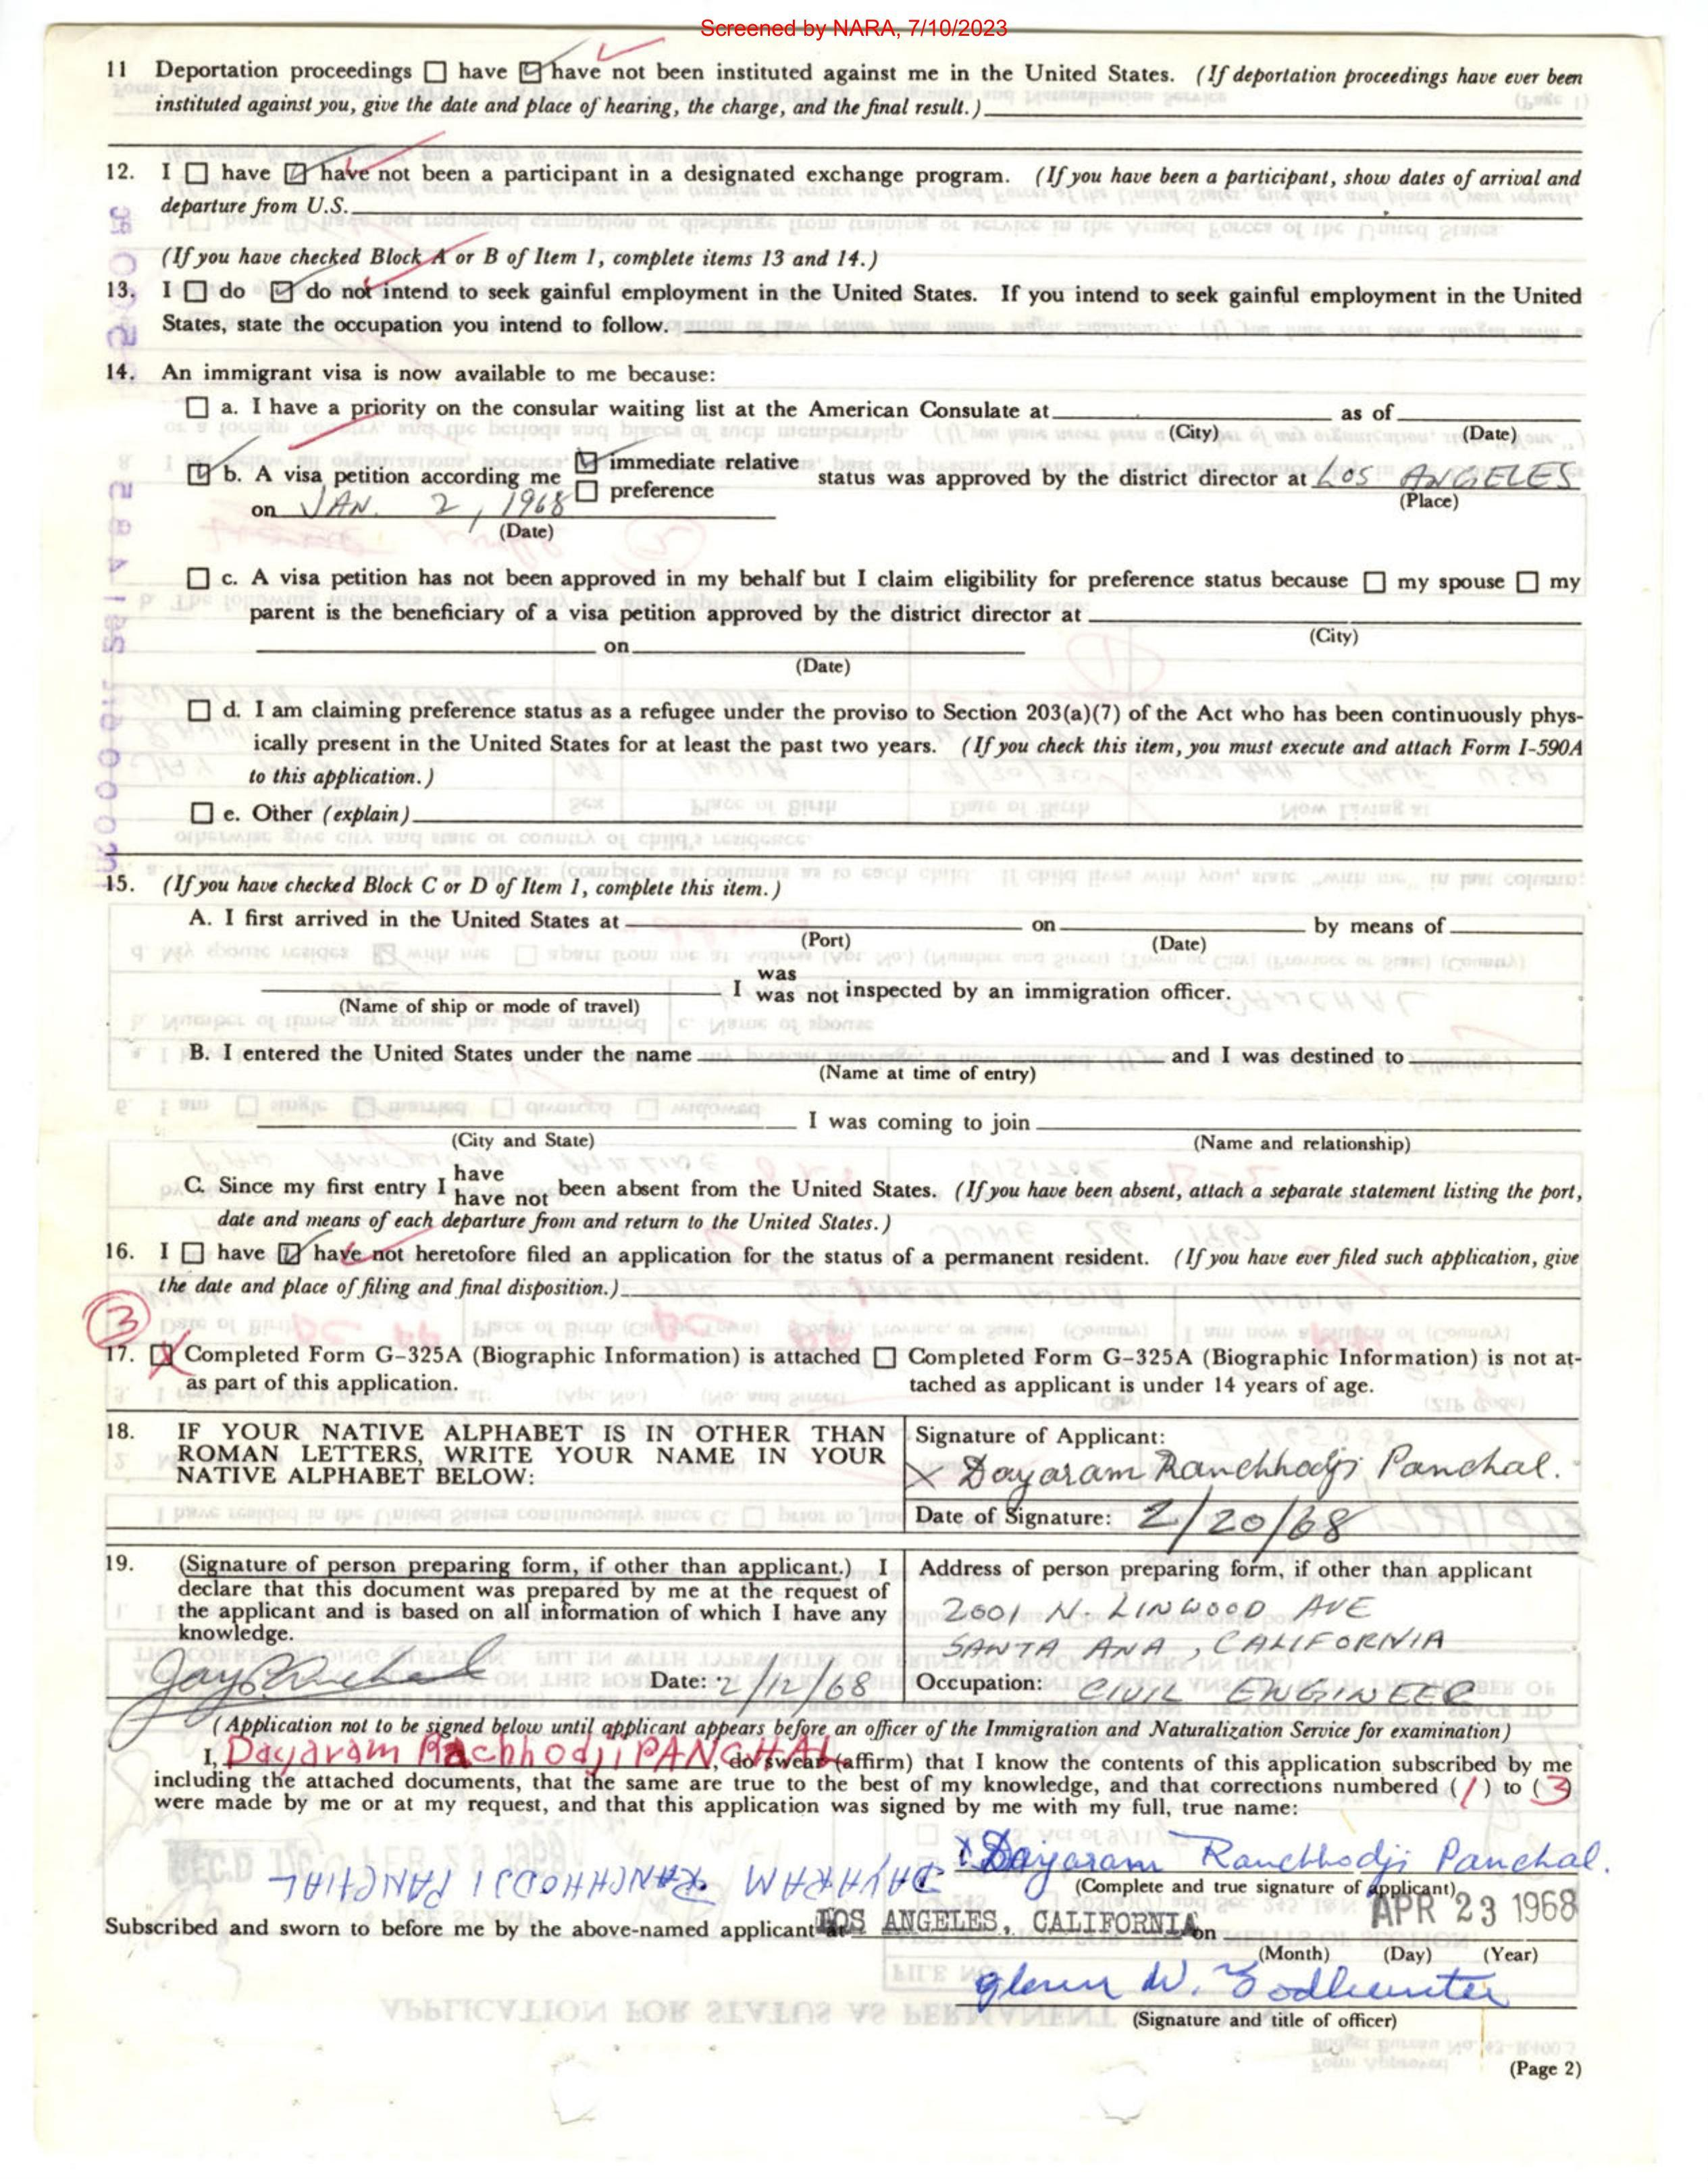 Screened by NARA, 7/10/2023
11 Deportation proceedings ☐ have ☑ have not been instituted against me in the United States. (If deportation proceedings have ever been
instituted against you, give the date and place of hearing, the charge, and the final result.)
12. I ☐ have ☑ have not been a participant in a designated exchange program. (If you have been a participant, show dates of arrival and
departure from U.S.
(If you have checked Block A or B of Item 1, complete items 13 and 14.)
13. I ☐ do ☑ do not intend to seek gainful employment in the United States. If you intend to seek gainful employment in the United
States, state the occupation you intend to follow.
14. An immigrant visa is now available to me because:
☐ a. I have a priority on the consular waiting list at the American Consulate at as of
(City) (Date)
☑ b. A visa petition according me ☑ immediate relative ☐ preference status was approved by the district director at LOS ANGELES
(Place)
on JAN. 2, 1968
(Date)
☐ c. A visa petition has not been approved in my behalf but I claim eligibility for preference status because ☐ my spouse ☐ my
parent is the beneficiary of a visa petition approved by the district director at
(City)
on
(Date)
☐ d. I am claiming preference status as a refugee under the proviso to Section 203(a)(7) of the Act who has been continuously phys-
ically present in the United States for at least the past two years. (If you check this item, you must execute and attach Form I-590A
to this application.)
☐ e. Other (explain)
15. (If you have checked Block C or D of Item 1, complete this item.)
A. I first arrived in the United States at on by means of
(Port) (Date)
I was was not inspected by an immigration officer.
(Name of ship or mode of travel)
B. I entered the United States under the name and I was destined to
(Name at time of entry)
I was coming to join
(City and State) (Name and relationship)
C. Since my first entry I have have not been absent from the United States. (If you have been absent, attach a separate statement listing the port,
date and means of each departure from and return to the United States.)
16. I ☐ have ☑ have not heretofore filed an application for the status of a permanent resident. (If you have ever filed such application, give
the date and place of filing and final disposition.)
3
17. ☒ Completed Form G-325A (Biographic Information) is attached ☐ Completed Form G-325A (Biographic Information) is not at-
as part of this application. tached as applicant is under 14 years of age.
18. IF YOUR NATIVE ALPHABET IS IN OTHER THAN
ROMAN LETTERS, WRITE YOUR NAME IN YOUR
NATIVE ALPHABET BELOW:
Signature of Applicant:
X Dayaram Ranchhodji Panchal.
Date of Signature: 2/20/68
19. (Signature of person preparing form, if other than applicant.) I
declare that this document was prepared by me at the request of
the applicant and is based on all information of which I have any
knowledge.
Jay Panchal Date: 2/12/68
Address of person preparing form, if other than applicant
2001 N. LINWOOD AVE
SANTA ANA, CALIFORNIA
Occupation: CIVIL ENGINEER
(Application not to be signed below until applicant appears before an officer of the Immigration and Naturalization Service for examination)
I, Dayaram Rachhodji PANCHAL, do swear (affirm) that I know the contents of this application subscribed by me
including the attached documents, that the same are true to the best of my knowledge, and that corrections numbered (1) to (3)
were made by me or at my request, and that this application was signed by me with my full, true name:
X Dayaram Ranchhodji Panchal.
DAYARAM RANCHHODJI PANCHAL
(Complete and true signature of applicant)
Subscribed and sworn to before me by the above-named applicant at LOS ANGELES, CALIFORNIA on APR 23 1968
(Month) (Day) (Year)
Glenn W.
(Signature and title of officer)
(Page 2)